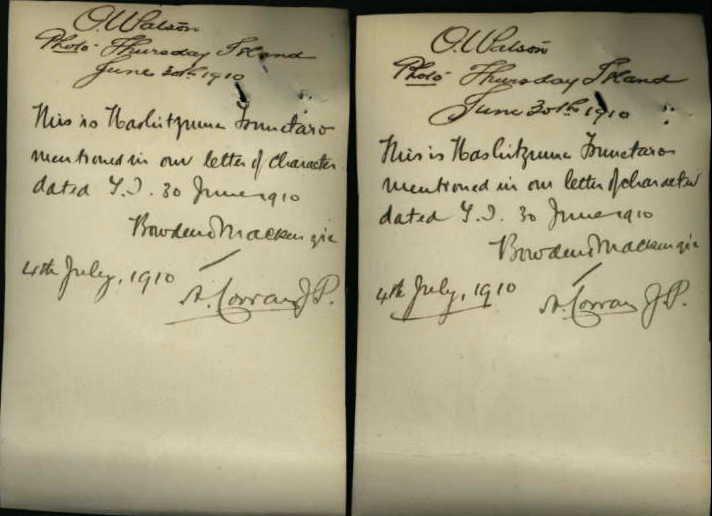 O. Watson
Photo- Thursday Island
June 30th 1910
This is Hashitzume Tsunetaro
mentioned in our letter of character
dated T.I. 30 June 1910
Bowden & Mackenzie
4th July, 1910
A. Corran J.P.
O. Watson
Photo- Thursday Island
June 30th 1910
This is Hashitzume Tsunetaro
mentioned in our letter of character
dated T.I. 30 June 1910
Bowden & Mackenzie
4th July, 1910
A. Corran J.P.